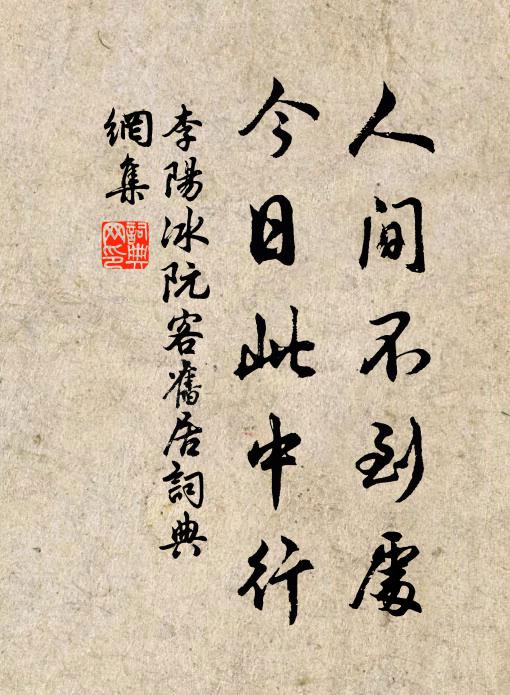 人間不到處
今日此中行
李陽冰阮客舊居詞典
網集
詞典
网印